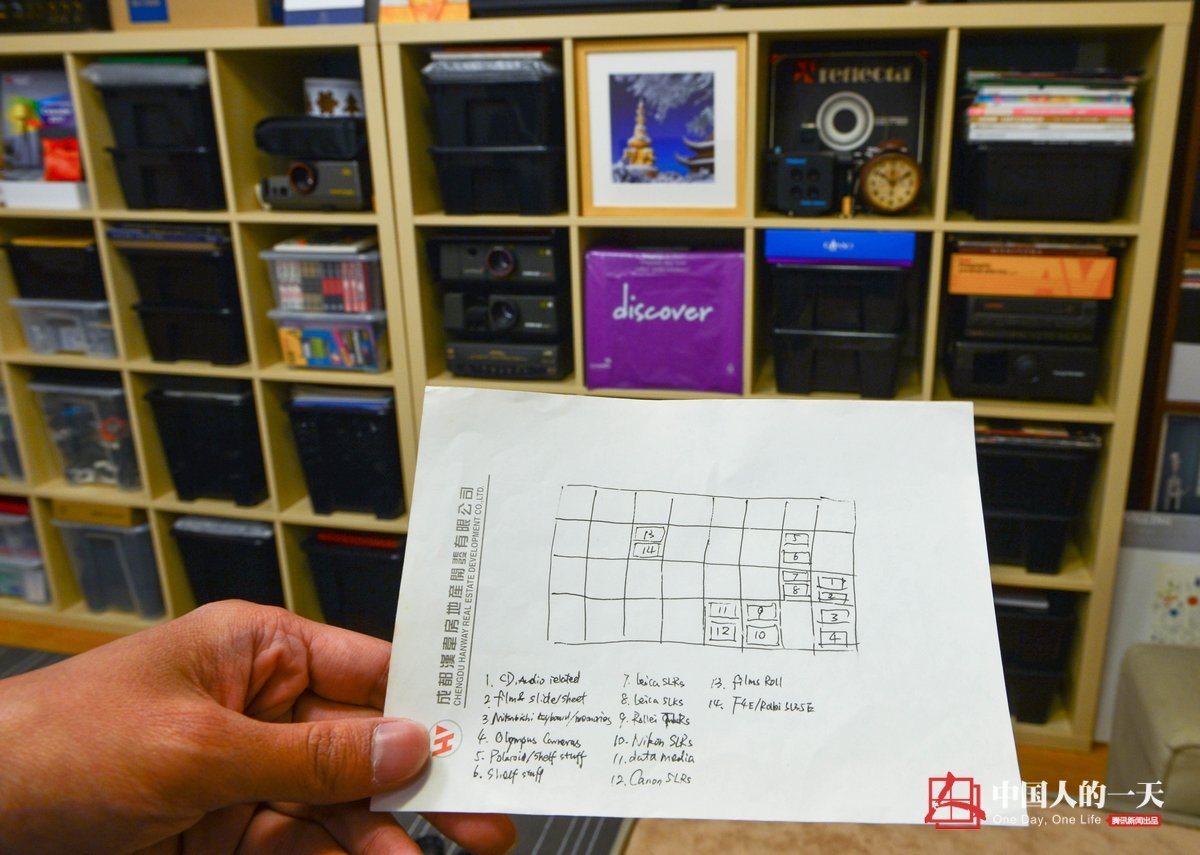 reflecta
discover
成都漢韋房地産開發有限公司
CHENGDU HANWAY REAL ESTATE DEVELOPMENT CO.,LTD.
13
14
5
6
7
8
1
2
3
4
11
12
9
10
1. CD. Audio related
2 film & slide/sheet
3 Mitsubichi keyboard/memories
4. Olympus Cameras
5. Polaroid/shelf stuff
6. Shelf stuff
7. Leica SLRs
8. Leica SLRs
9. Rollei
10. Nikon SLRs
11. data media
12. Canon SLRs
13. films Roll
14. F4E/Rollei SL35E
中国人的一天
One Day, One Life
腾讯新闻出品